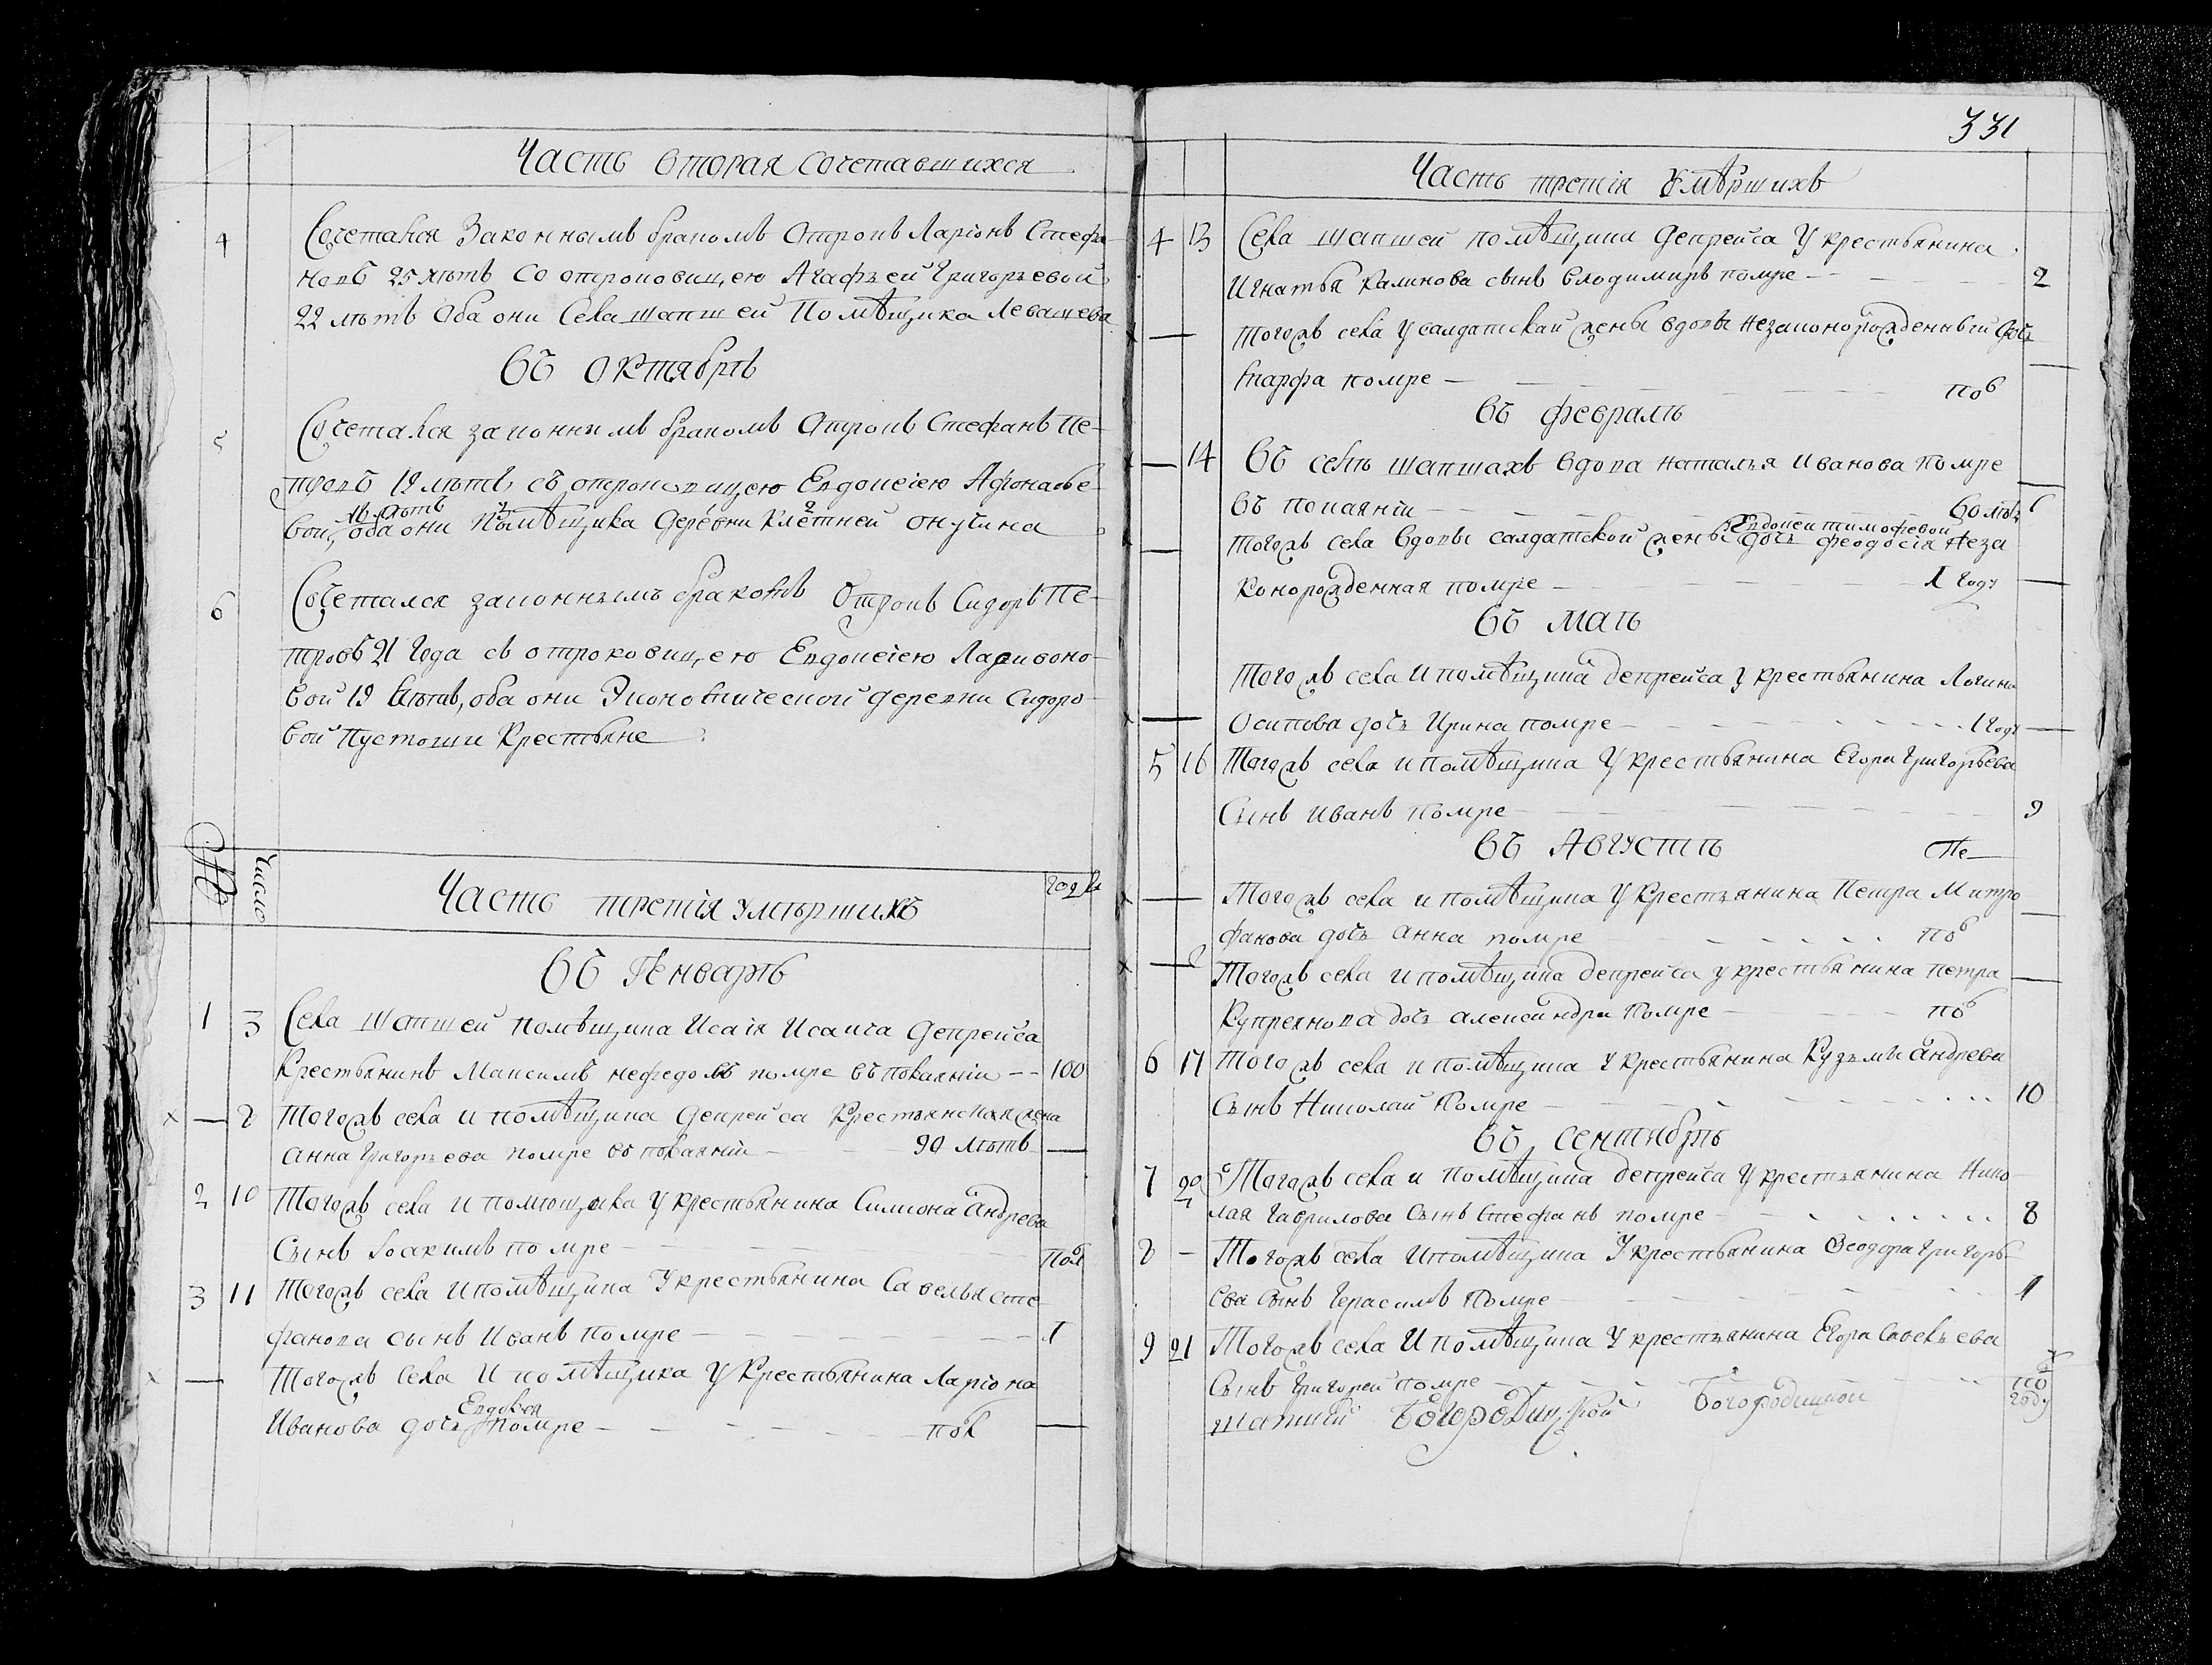 Часть вторая сочетавшихся
4 Сочетался Законнымъ бракомъ Отрокъ Ларіонъ Стефа-
новъ 25 лѣтъ со отроковицею Агафьей Григорьевой
22 лѣтъ Оба они Села шапшей Помѣщика Левашева
Въ Октябрѣ
5 Сочетался законнымъ бракомъ Отрокъ Стефанъ Пе-
тровъ 19 лѣтъ, съ отроковицею Евдокіею Афонасье-
16 лѣтъ
вой, оба они помѣщика деревни Клетней онучина
6 Сочетался законнымъ бракомъ Отрокъ Сидоръ Пе-
тровъ 21 Года съ отроковицею Евдокіею Ларивоно-
вой 19 лѣтъ, оба они Экономической деревни Сидоро-
вой Пустоши Крестьяне
№ Число Часть третія умѣршихъ года
Въ Генварѣ
1 3 Села Шапшей помѣщика Исаія Исаича Депрейса
Крестьянинъ Максимъ нефедовъ помре въ покаяніи -- 100
× — 8 Тогожъ села и помѣщика Депрейса Крестьянская жена
анна Григорьева помре въ покаяніи — 90 лѣтъ —
2 10 Тогожъ села и помющика у крестьянина Симиона андрева
Сынъ Іоакимъ помре — пол
3 11 Тогожъ села и помѣщика у крестьянина Савелья сте
фанова сынъ Иванъ помре — 1
— Тогожъ Села и помѣщика у Крестьянина Ларіона
Евдокея
Иванова дочь помре — пол —
331
Часть третія умѣршихъ
4 13 Села шапшей помѣщика Депрейса у крестьянина
Игнатья Калинова сынъ Влодимиръ помре — 2
— тогожъ села у салдатскай жены вдовы незаконорожденный дочь
марфа помре — пов —
Въ февралѣ
— 14 Въ селѣ шапшахъ вдова наталья Иванова помре
въ покаяніи — 60 лѣтъ
Евдокеи тимофевой
— тогожъ села вдовы салдатской жены дочь феодосія неза
конорожденная помре — 1 году —
Въ маіѣ
тогожъ села и помѣщика депрейса у крестьянина Логина
— Осипова дочь Ирина помре — 1 году —
5 16 Тогожъ села и помѣщика у крестьянина Егора Григорьева
Сынъ иванъ помре — 9
Въ Августѣ
— Тогожъ села и помѣщика у Крестьянина Петра Митро
фанова дочь анна помре — пов —
× — Тогожъ села и помѣщика депрейса у крестьянина петра
Купреянова дочь александра помре — пов —
6 17 тогожъ села и помѣщика у крестьянина Кузьмы андрева
Сынъ Николай помре — 10
Въ сентябрѣ
7 20 Тогожъ села и помѣщика депрейса у крестьянина Нико
лая Гаврилова Сынъ Стефанъ помре — 8
8 — Тогожъ села и помѣщика у крестьянина Ѳеодора Григорь-
ева Сынъ Герасимъ помре — 1
9 21 Тогожъ села и помѣщика у крестьянина Егора Савельева
Сынъ Григорей помре — по году
Богородицкой Богородицкой